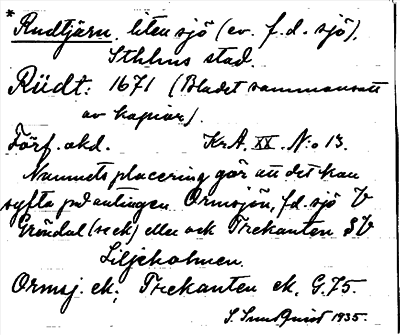 * Rudtjärn, liten sjö (ev. f.d. sjö),
Sthlms stad.
Rüdt: 1671 (Bladet sammansatt
av kopior).
Förf. okd. KrA. XX. N:o 13.
Namnets placering gör att det kan
syfta på antingen Ormsjön, f.d. sjö V
Gröndal (se ek) eller ock Trekanten SV
Liljeholmen.
Ormsj. ek; Trekanten ek. G.75.
S. 1935.